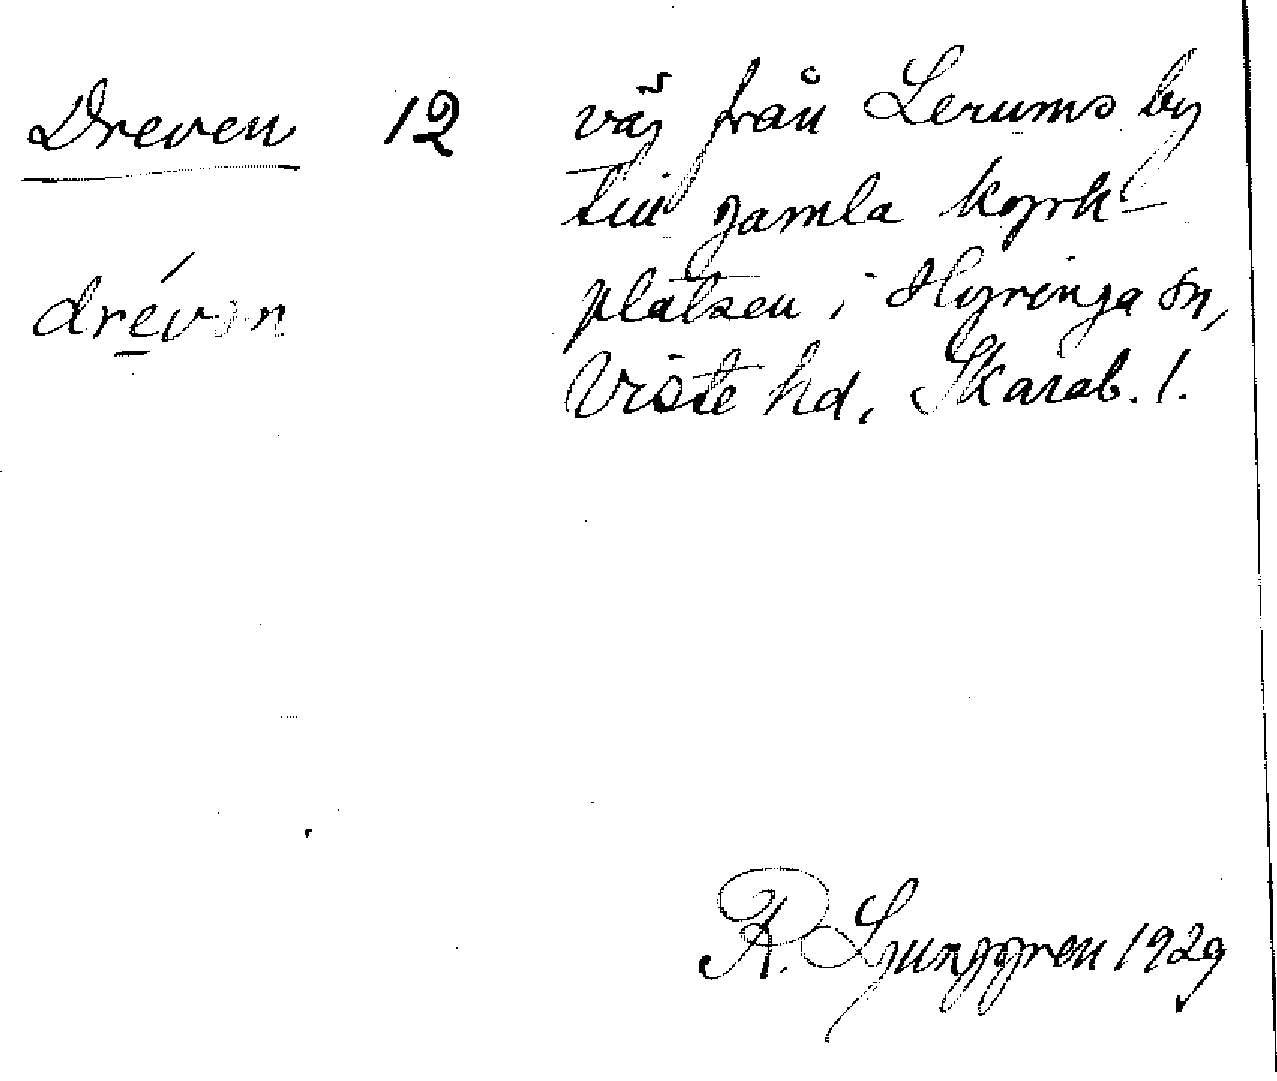 Dreven 12 väg från Lerums by
till gamla kyrk-
drévən platsen i Hyringa sn,
Viste hd, Skarab. l.
R. Ljunggren 1929